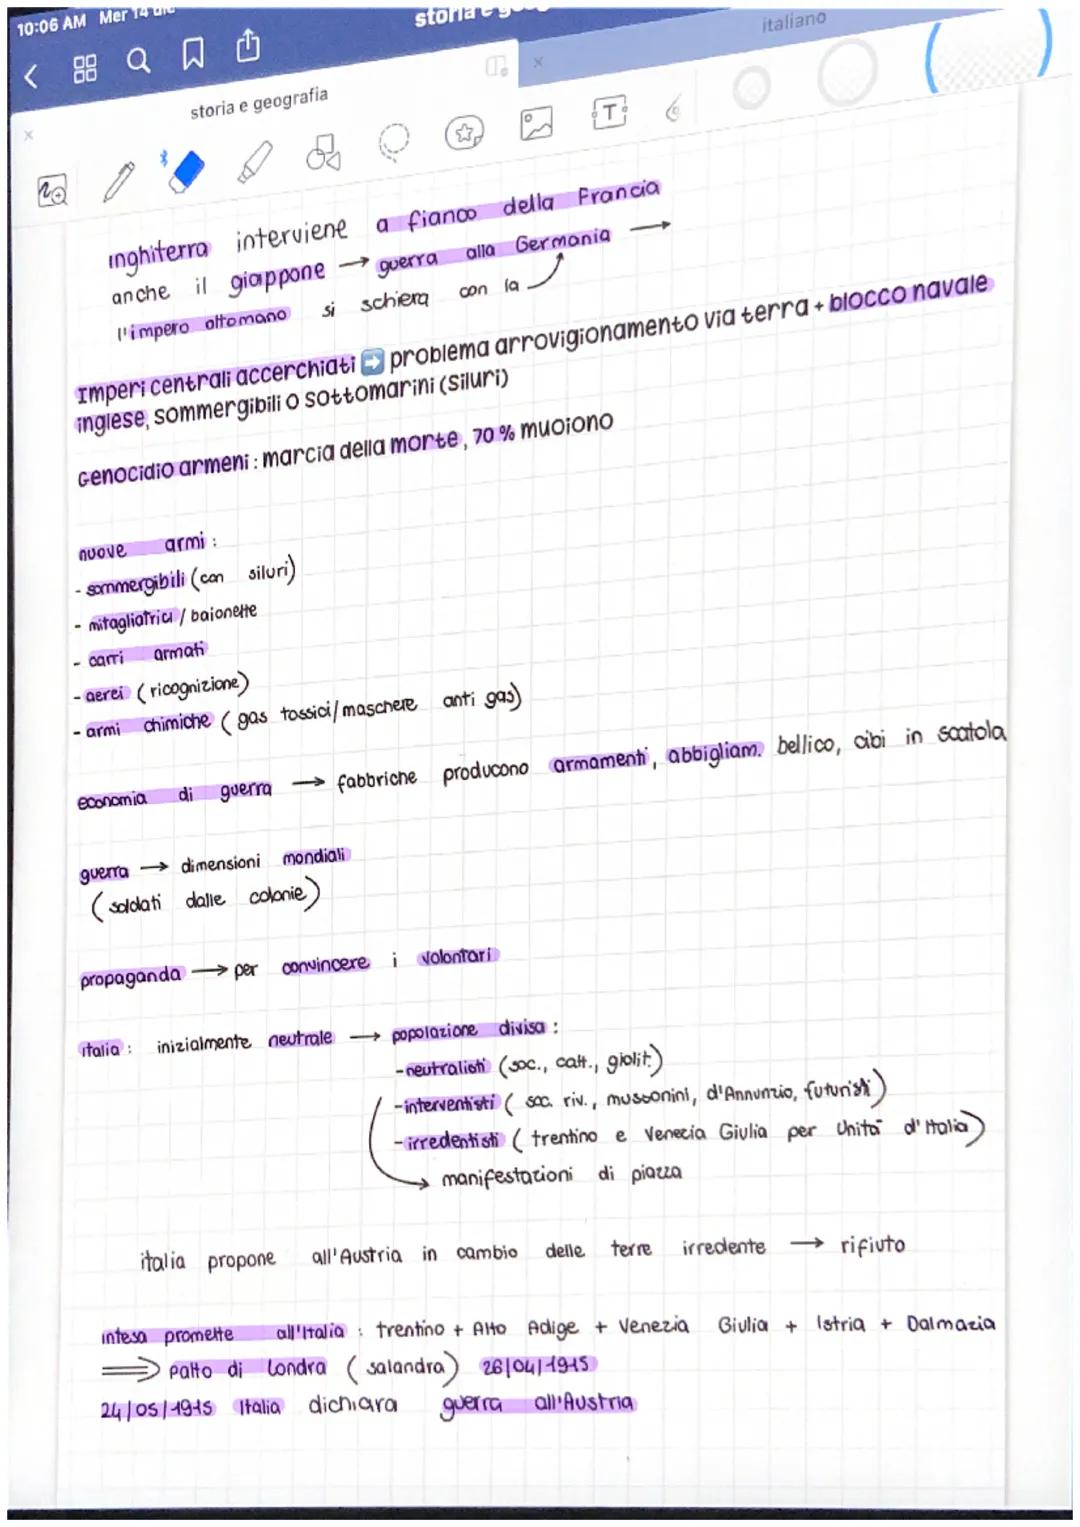 10:06 AM Mer 14 dic
storia e geog
italiano
storia e geografia
inghiterra interviene a fianco della Francia
anche il giappone → guerra alla Germania →
l'impero ottomano si schiera con la
Imperi centrali accerchiati ➡ problema arrovigionamento via terra + blocco navale
inglese, sommergibili o sottomarini (siluri)
Genocidio armeni: marcia della morte, 70% muoiono
nuove armi:
- sommergibili (con siluri)
- mitagliatrici / baionette
- carri armati
- aerei (ricognizione)
- armi chimiche (gas tossici/maschere anti gas)
economia di guerra → fabbriche producono armamenti, abbigliam. bellico, cibi in scatola
guerra → dimensioni mondiali
(soldati dalle colonie)
propaganda → per convincere i volontari
italia: inizialmente neutrale → popolazione divisa:
- neutralisti (soc., catt., giolit.)
- interventisti (soc. riv., mussonini, d'Annunzio, futuristi)
- irredentisti (trentino e Venecia Giulia per Unità d'Italia)
→ manifestazioni di piazza
italia propone all'Austria in cambio delle terre irredente → rifiuto
intesa promette all'Italia: trentino + Alto Adige + Venezia Giulia + Istria + Dalmazia
⟹ Patto di Londra (salandra) 26/04/1915
24/05/1915 Italia dichiara guerra all'Austria